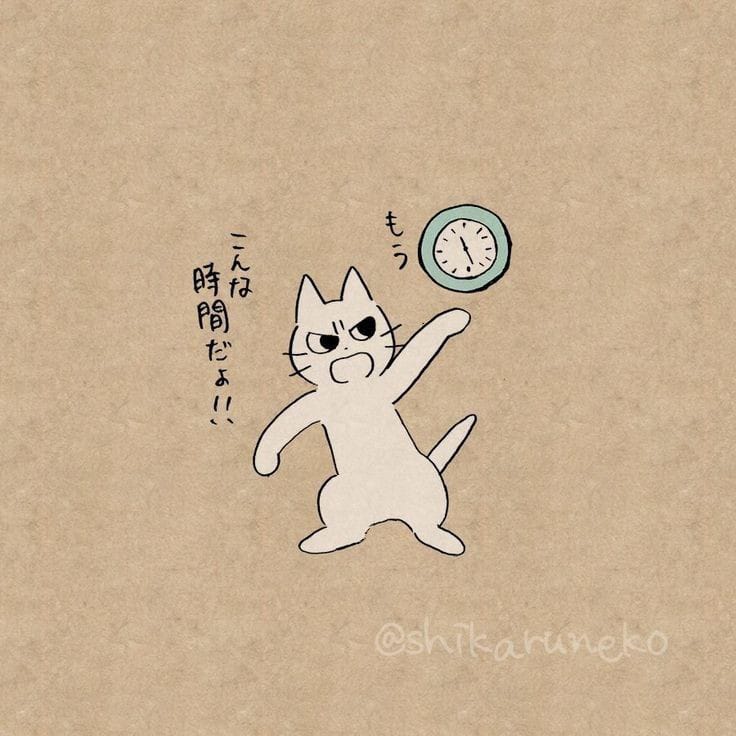 もう
こんな
時間だよ!!
@shikaruneko